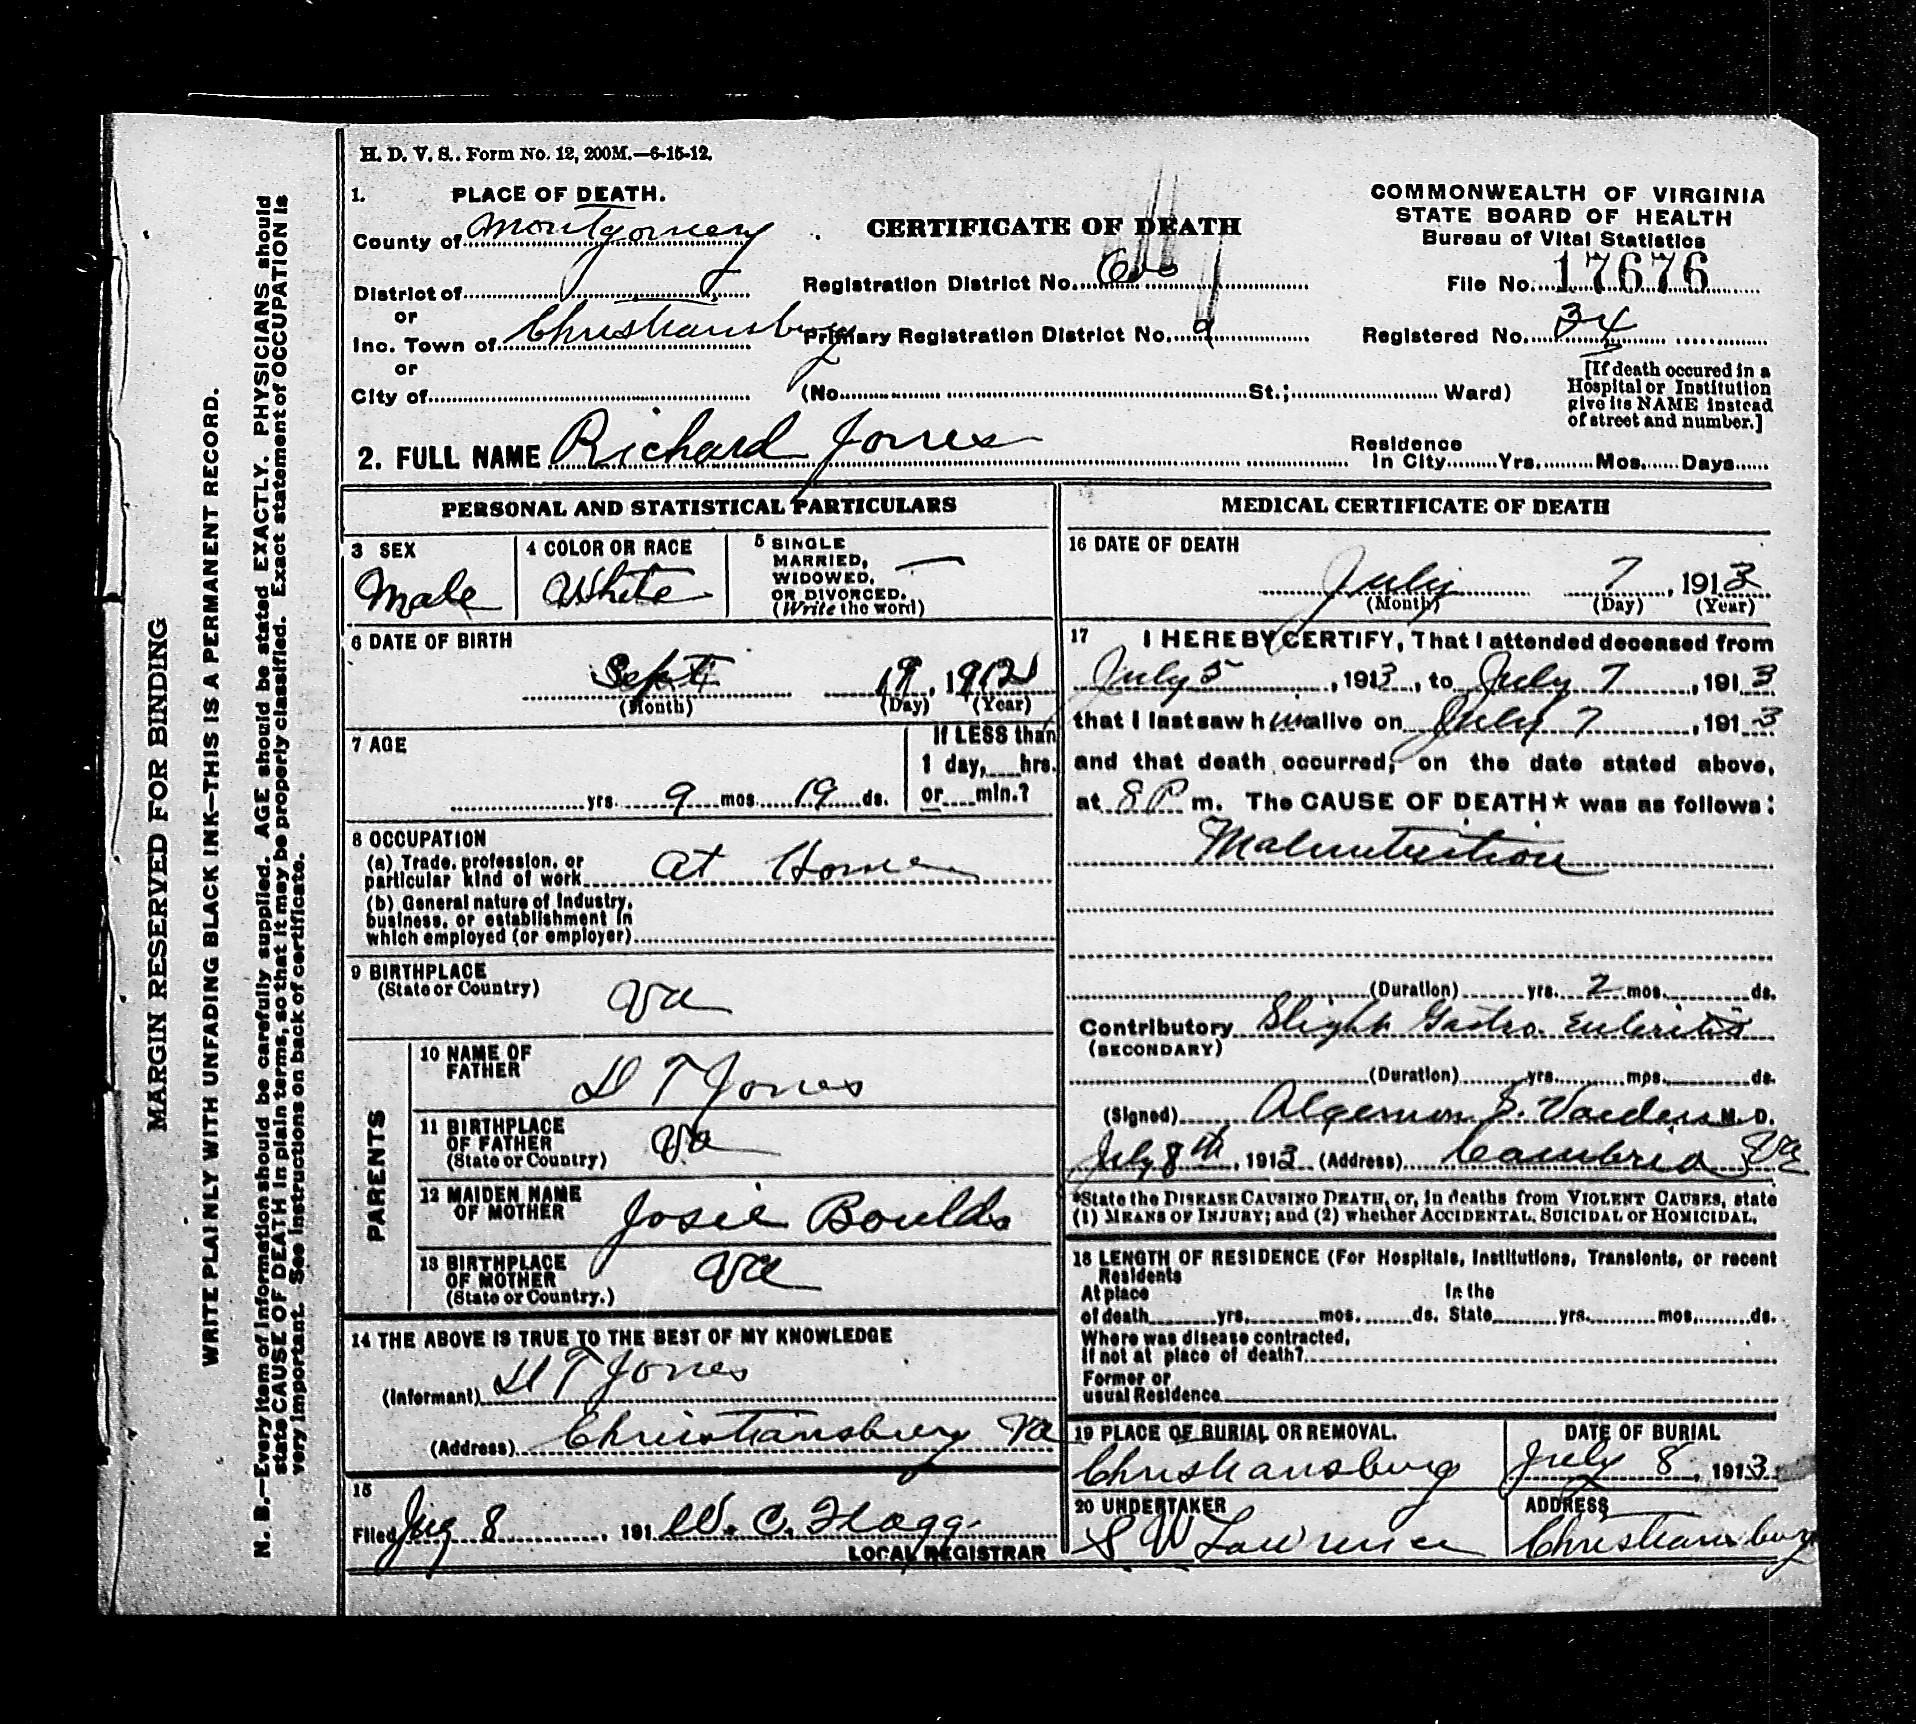 H. D. V. S.. Form No. 12, 200M.—6-15-12.
1. PLACE OF DEATH.
County of Montgomery
District of
or
Inc. Town of Christiansburg
or
City of
CERTIFICATE OF DEATH
Registration District No. 600
Primary Registration District No. 9
(No. St.; Ward)
COMMONWEALTH OF VIRGINIA
STATE BOARD OF HEALTH
Bureau of Vital Statistics
File No. 17676
Registered No. 34
[If death occured in a
Hospital or Institution
give its NAME instead
of street and number.]
2. FULL NAME Richard Jones
Residence
In City Yrs. Mos. Days
PERSONAL AND STATISTICAL PARTICULARS
3 SEX
Male
4 COLOR OR RACE
White
5 SINGLE
MARRIED,
WIDOWED,
OR DIVORCED.
(Write the word)
—
6 DATE OF BIRTH
Sept 19, 1912
(Month) (Day) (Year)
7 AGE
yrs. 9 mos. 19 ds.
If LESS than
1 day, hrs.
or min.?
8 OCCUPATION
(a) Trade, profession, or
particular kind of work at Home
(b) General nature of Industry,
business, or establishment in
which employed (or employer)
9 BIRTHPLACE
(State or Country)
Va
PARENTS
10 NAME OF
FATHER
D T Jones
11 BIRTHPLACE
OF FATHER
(State or Country)
Va
12 MAIDEN NAME
OF MOTHER
Josie Boulds
13 BIRTHPLACE
OF MOTHER
(State or Country.)
Va
14 THE ABOVE IS TRUE TO THE BEST OF MY KNOWLEDGE
(Informant) D T Jones
(Address) Christiansburg Va
15
Filed 8, 191 W. C. Flagg.
LOCAL REGISTRAR
MEDICAL CERTIFICATE OF DEATH
16 DATE OF DEATH
July 7, 1913
(Month) (Day) (Year)
17 I HEREBY CERTIFY, That I attended deceased from
July 5, 1913, to July 7, 1913
that I last saw h im alive on July 7, 1913
and that death occurred, on the date stated above,
at 8 P m. The CAUSE OF DEATH* was as follows:
Malnutrition
(Duration) yrs. 2 mos. ds.
Contributory Slight Gastro Enteritis
(SECONDARY)
(Duration) yrs. mos. ds.
(Signed) Algernon S. Vaiden M. D.
July 8th, 1913 (Address) Cambria Va
*State the DISEASE CAUSING DEATH, or, in deaths from VIOLENT CAUSES, state
(1) MEANS OF INJURY; and (2) whether ACCIDENTAL, SUICIDAL or HOMICIDAL.
18 LENGTH OF RESIDENCE (For Hospitals, Institutions, Transients, or recent
Residents
At place In the
of death yrs. mos. ds. State yrs. mos. ds.
Where was disease contracted,
If not at place of death?
Former or
usual Residence
19 PLACE OF BURIAL OR REMOVAL.
Christiansburg
DATE OF BURIAL
July 8, 1913
20 UNDERTAKER
S W Lawrence
ADDRESS
Christiansburg
MARGIN RESERVED FOR BINDING
WRITE PLAINLY WITH UNFADING BLACK INK—THIS IS A PERMANENT RECORD.
N. B.—Every item of information should be carefully supplied. AGE should be stated EXACTLY. PHYSICIANS should
state CAUSE OF DEATH in plain terms, so that it may be properly classified. Exact statement of OCCUPATION is
very important. See instructions on back of certificate.